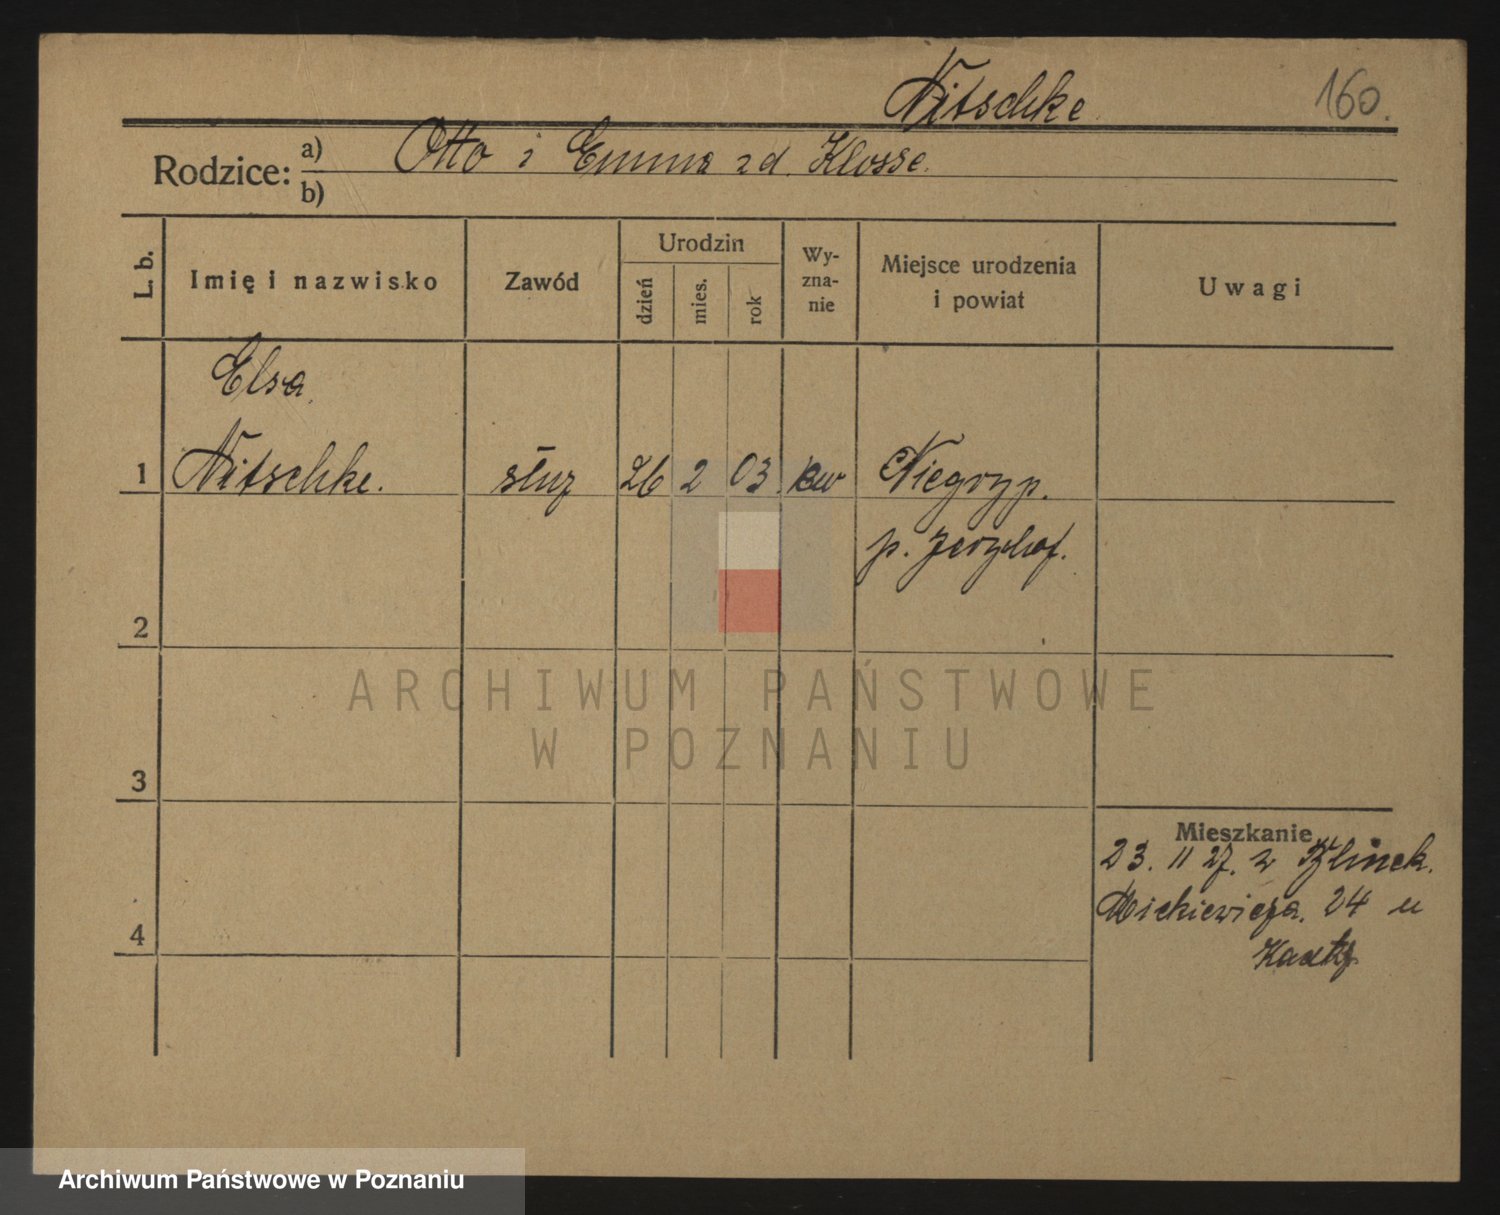 Nitschke
160.
Rodzice: a) Otto i Emma zd. Klosse.
b)
L. b. Imię i nazwisko Zawód Urodzin dzień mies. rok Wy-zna-nie Miejsce urodzenia i powiat Uwagi
Elsa
1 Nitschke. służ 26 2 03 ew
p.
2
ARCHIWUM PAŃSTWOWE
W POZNANIU
3
Mieszkanie
4
23. 11 27. z
Mickiewicza. 24 u
Archiwum Państwowe w Poznaniu